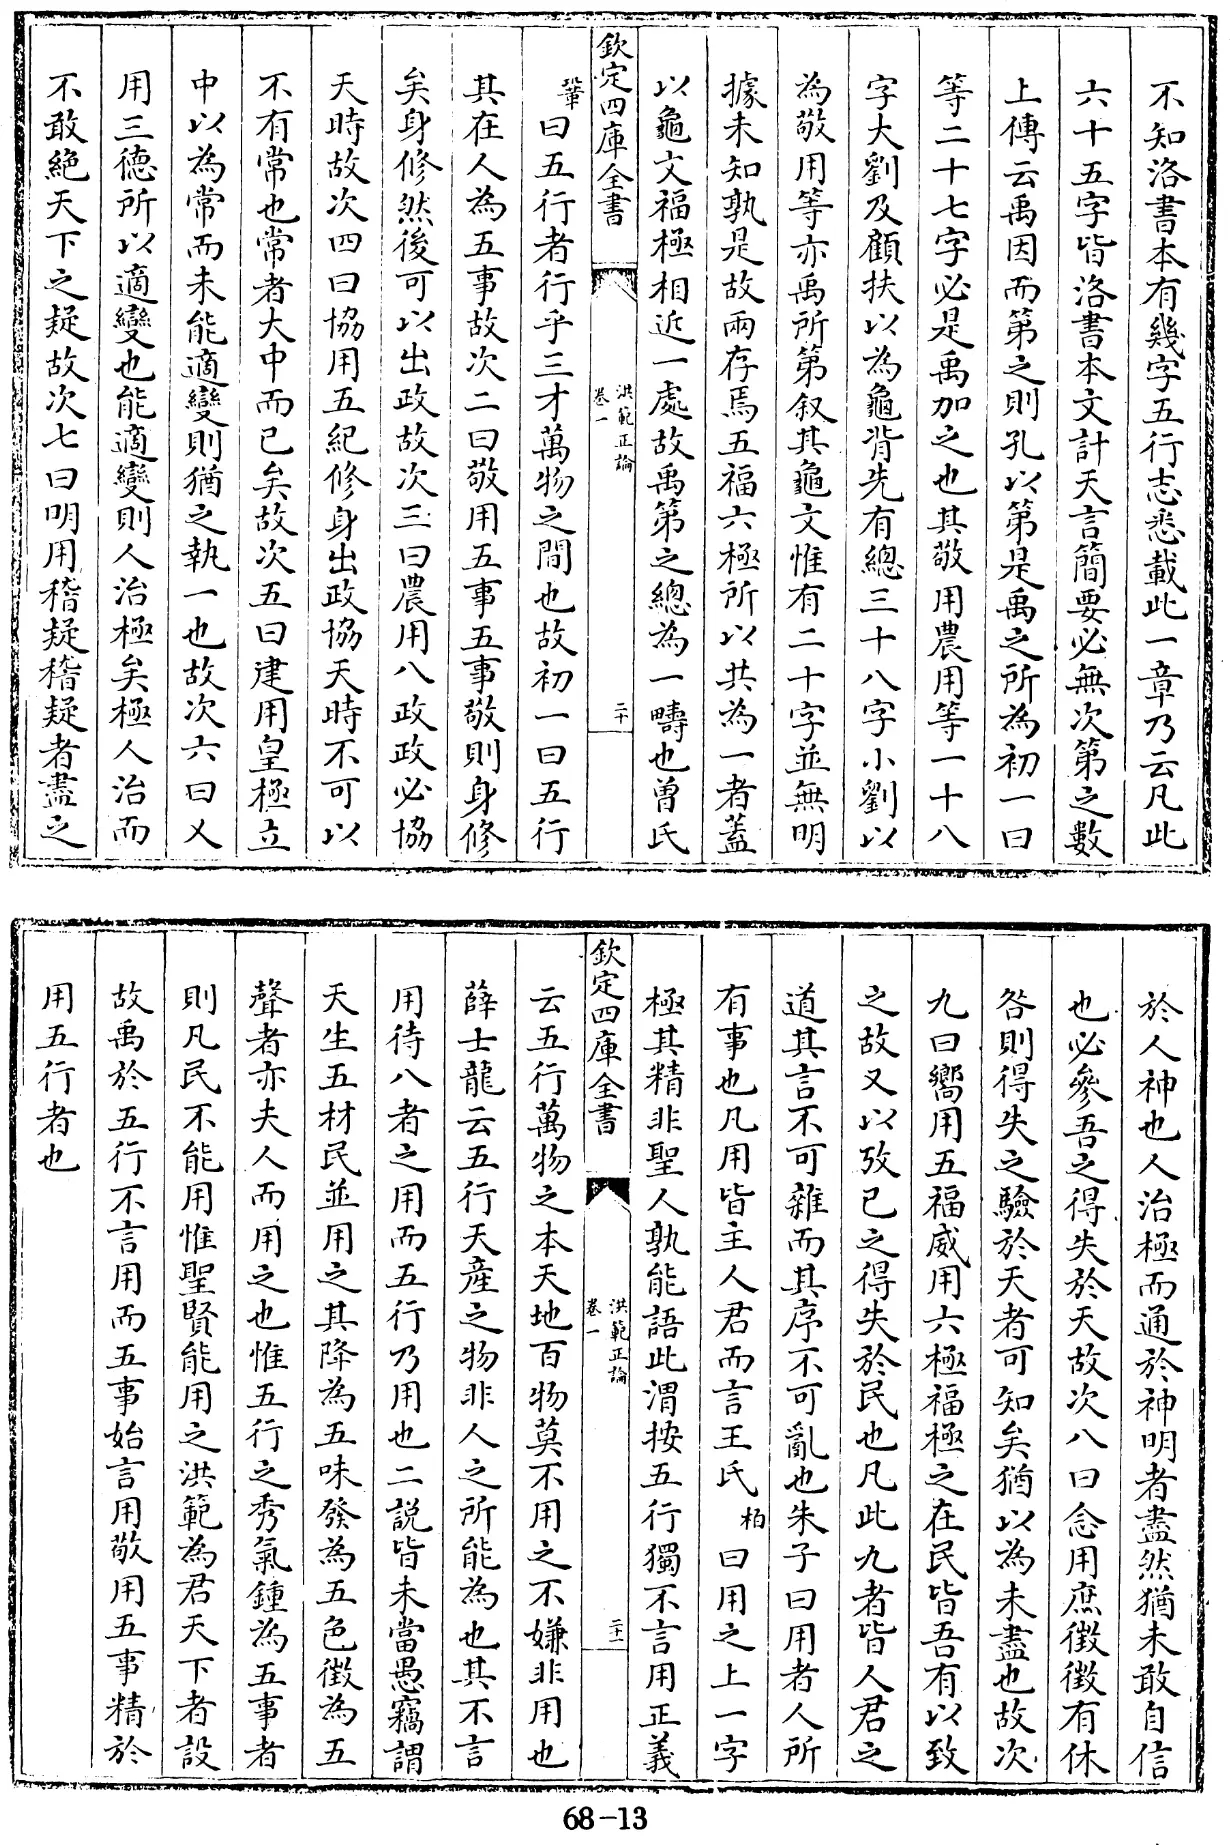 不知洛書本有幾字五行志悉載此一章乃云凡此
六十五字皆洛書本文計天言簡要必無次第之數
上傳云禹因而第之則孔以第是禹之所為初一曰
等二十七字必是禹加之也其敬用農用等一十八
字大劉及顧扶以為龜背先有總三十八字小劉以
為敬用等亦禹所第叙其龜文惟有二十字並無明
據未知孰是故兩存焉五福六極所以共為一者蓋
以龜文福極相近一處故禹第之總為一疇也曽氏
欽定四庫全書
洪範正論
卷一
二十
鞏曰五行者行乎三才萬物之間也故初一曰五行
其在人為五事故次二曰敬用五事五事敬則身修
矣身修然後可以出政故次三曰農用八政政必協
天時故次四曰協用五紀修身出政協天時不可以
不有常也常者大中而已矣故次五曰建用皇極立
中以為常而未能適變則猶之執一也故次六曰乂
用三德所以適變也能適變則人治極矣極人治而
不敢絶天下之疑故次七曰明用稽疑稽疑者盡之
於人神也人治極而通於神明者盡然猶未敢自信
也必參吾之得失於天故次八曰念用庶徴徴有休
咎則得失之驗於天者可知矣猶以為未盡也故次
九曰嚮用五福威用六極福極之在民皆吾有以致
之故又以攷已之得失於民也凡此九者皆人君之
道其言不可雜而其序不可亂也朱子曰用者人所
有事也凡用皆主人君而言王氏柏曰用之上一字
極其精非聖人孰能語此渭按五行獨不言用正義
欽定四庫全書
洪範正論
卷一
二十一
云五行萬物之本天地百物莫不用之不嫌非用也
薛士龍云五行天産之物非人之所能為也其不言
用待八者之用而五行乃用也二説皆未當愚竊謂
天生五材民並用之其降為五味發為五色徴為五
聲者亦夫人而用之也惟五行之秀氣鍾為五事者
則凡民不能用惟聖賢能用之洪範為君天下者設
故禹於五行不言用而五事始言用敬用五事精於
用五行者也
68-13